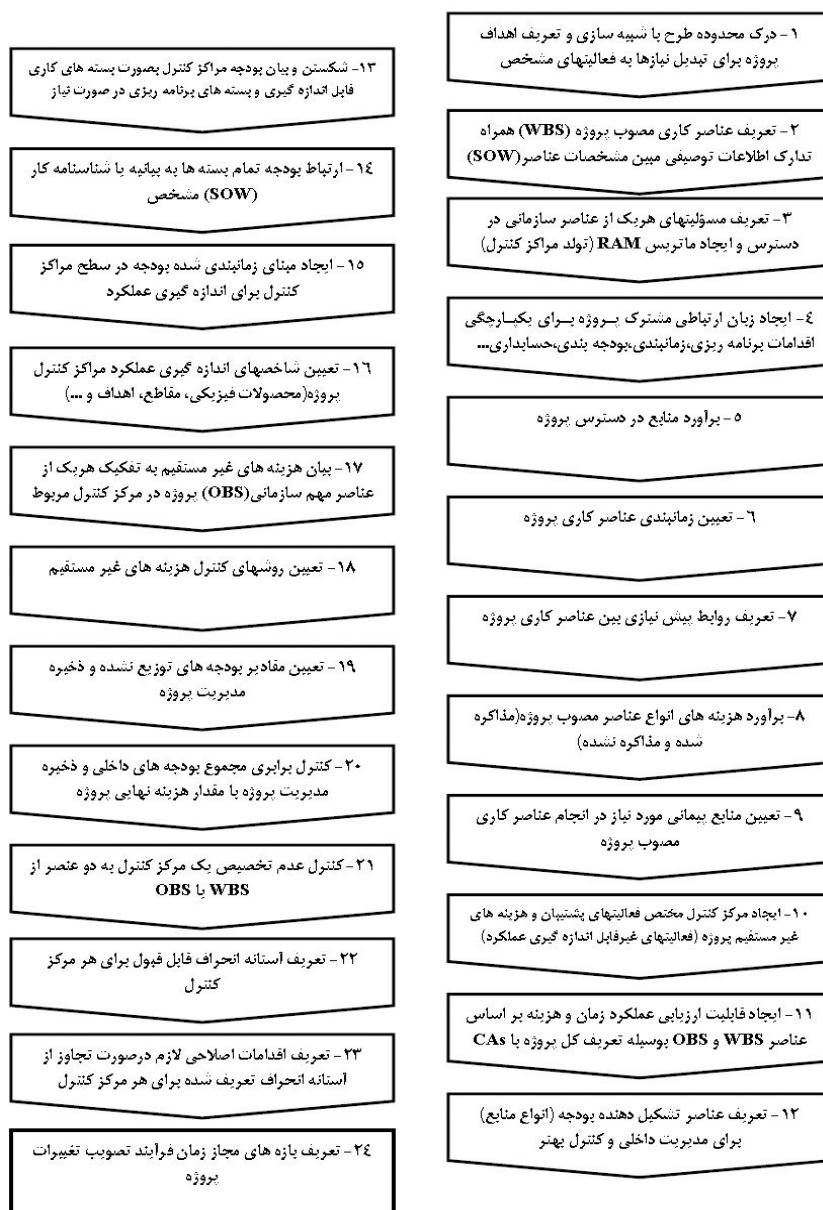 ۱- درک محدوده طرح با شبیه سازی و تعریف اهداف
پروژه برای تبدیل نیازها به فعالیتهای مشخص
۲- تعریف عناصر کاری مصوب پروژه (WBS) همراه
تدارک اطلاعات توصیفی مبین مشخصات عناصر(SOW)
۳- تعریف مسؤلیتهای هریک از عناصر سازمانی در
دسترس و ایجاد ماتریس RAM (تولد مراکز کنترل)
٤- ایجاد زبان ارتباطی مشترک پــروژه بــرای یکپــارچگی
اقدامات برنامه ریزی،زمانبندی،بودجه بندی،حسابداری...
۵- برآورد منابع در دسترس پروژه
٦- تعیین زمانبندی عناصر کاری پروژه
۷- تعریف روابط پیش نیازی بین عناصر کاری پروژه
۸- برآورد هزینه های انواع عناصر مصوب پروژه(مذاکره
شده و مذاکره نشده)
۹- تعیین منابع پیمانی مورد نیاز در انجام عناصر کاری
مصوب پروژه
۱۰- ایجاد مرکز کنترل مختص فعالیتهای پشتیبان و هزینه های
غیر مستقیم پروژه (فعالیتهای غیرقابل اندازه گیری عملکرد)
۱۱- ایجاد قابلیت ارزیابی عملکرد زمان و هزینه بر اساس
عناصر WBS و OBS بوسیله تعریف کل پروژه با CAs
۱۲- تعریف عناصر تشکیل دهنده بودجه (انواع منابع)
برای مدیریت داخلی و کنترل بهتر
۱۳- شکستن و بیان بودجه مراکز کنترل بصورت بسته های کاری
قابل اندازه گیری و بسته های برنامه ریزی در صورت نیاز
۱٤- ارتباط بودجه تمام بسته ها به بیانیه یا شناسنامه کار
(SOW) مشخص
۱۵- ایجاد مبنای زمانبندی شده بودجه در سطح مراکز
کنترل برای اندازه گیری عملکرد
۱٦- تعیین شاخصهای اندازه گیری عملکرد مراکز کنترل
پروژه(محصولات فیزیکی، مقاطع، اهداف و ...)
۱۷- بیان هزینه های غیر مستقیم به تفکیک هریک از
عناصر مهم سازمانی(OBS) پروژه در مرکز کنترل مربوط
۱۸- تعیین روشهای کنترل هزینه های غیر مستقیم
۱۹- تعیین مقادیر بودجه های توزیع نشده و ذخیره
مدیریت پروژه
۲۰- کنترل برابری مجموع بودجه های داخلی و ذخیره
مدیریت پروژه با مقدار هزینه نهایی پروژه
۲۱- کنترل عدم تخصیص یک مرکز کنترل به دو عنصر از
WBS یا OBS
۲۲- تعریف آستانه انحراف قابل قبول برای هر مرکز
کنترل
۲۳- تعریف اقدامات اصلاحی لازم درصورت تجاوز از
آستانه انحراف تعریف شده برای هر مرکز کنترل
۲٤- تعریف بازه های مجاز زمان فرآیند تصویب تغییرات
پروژه